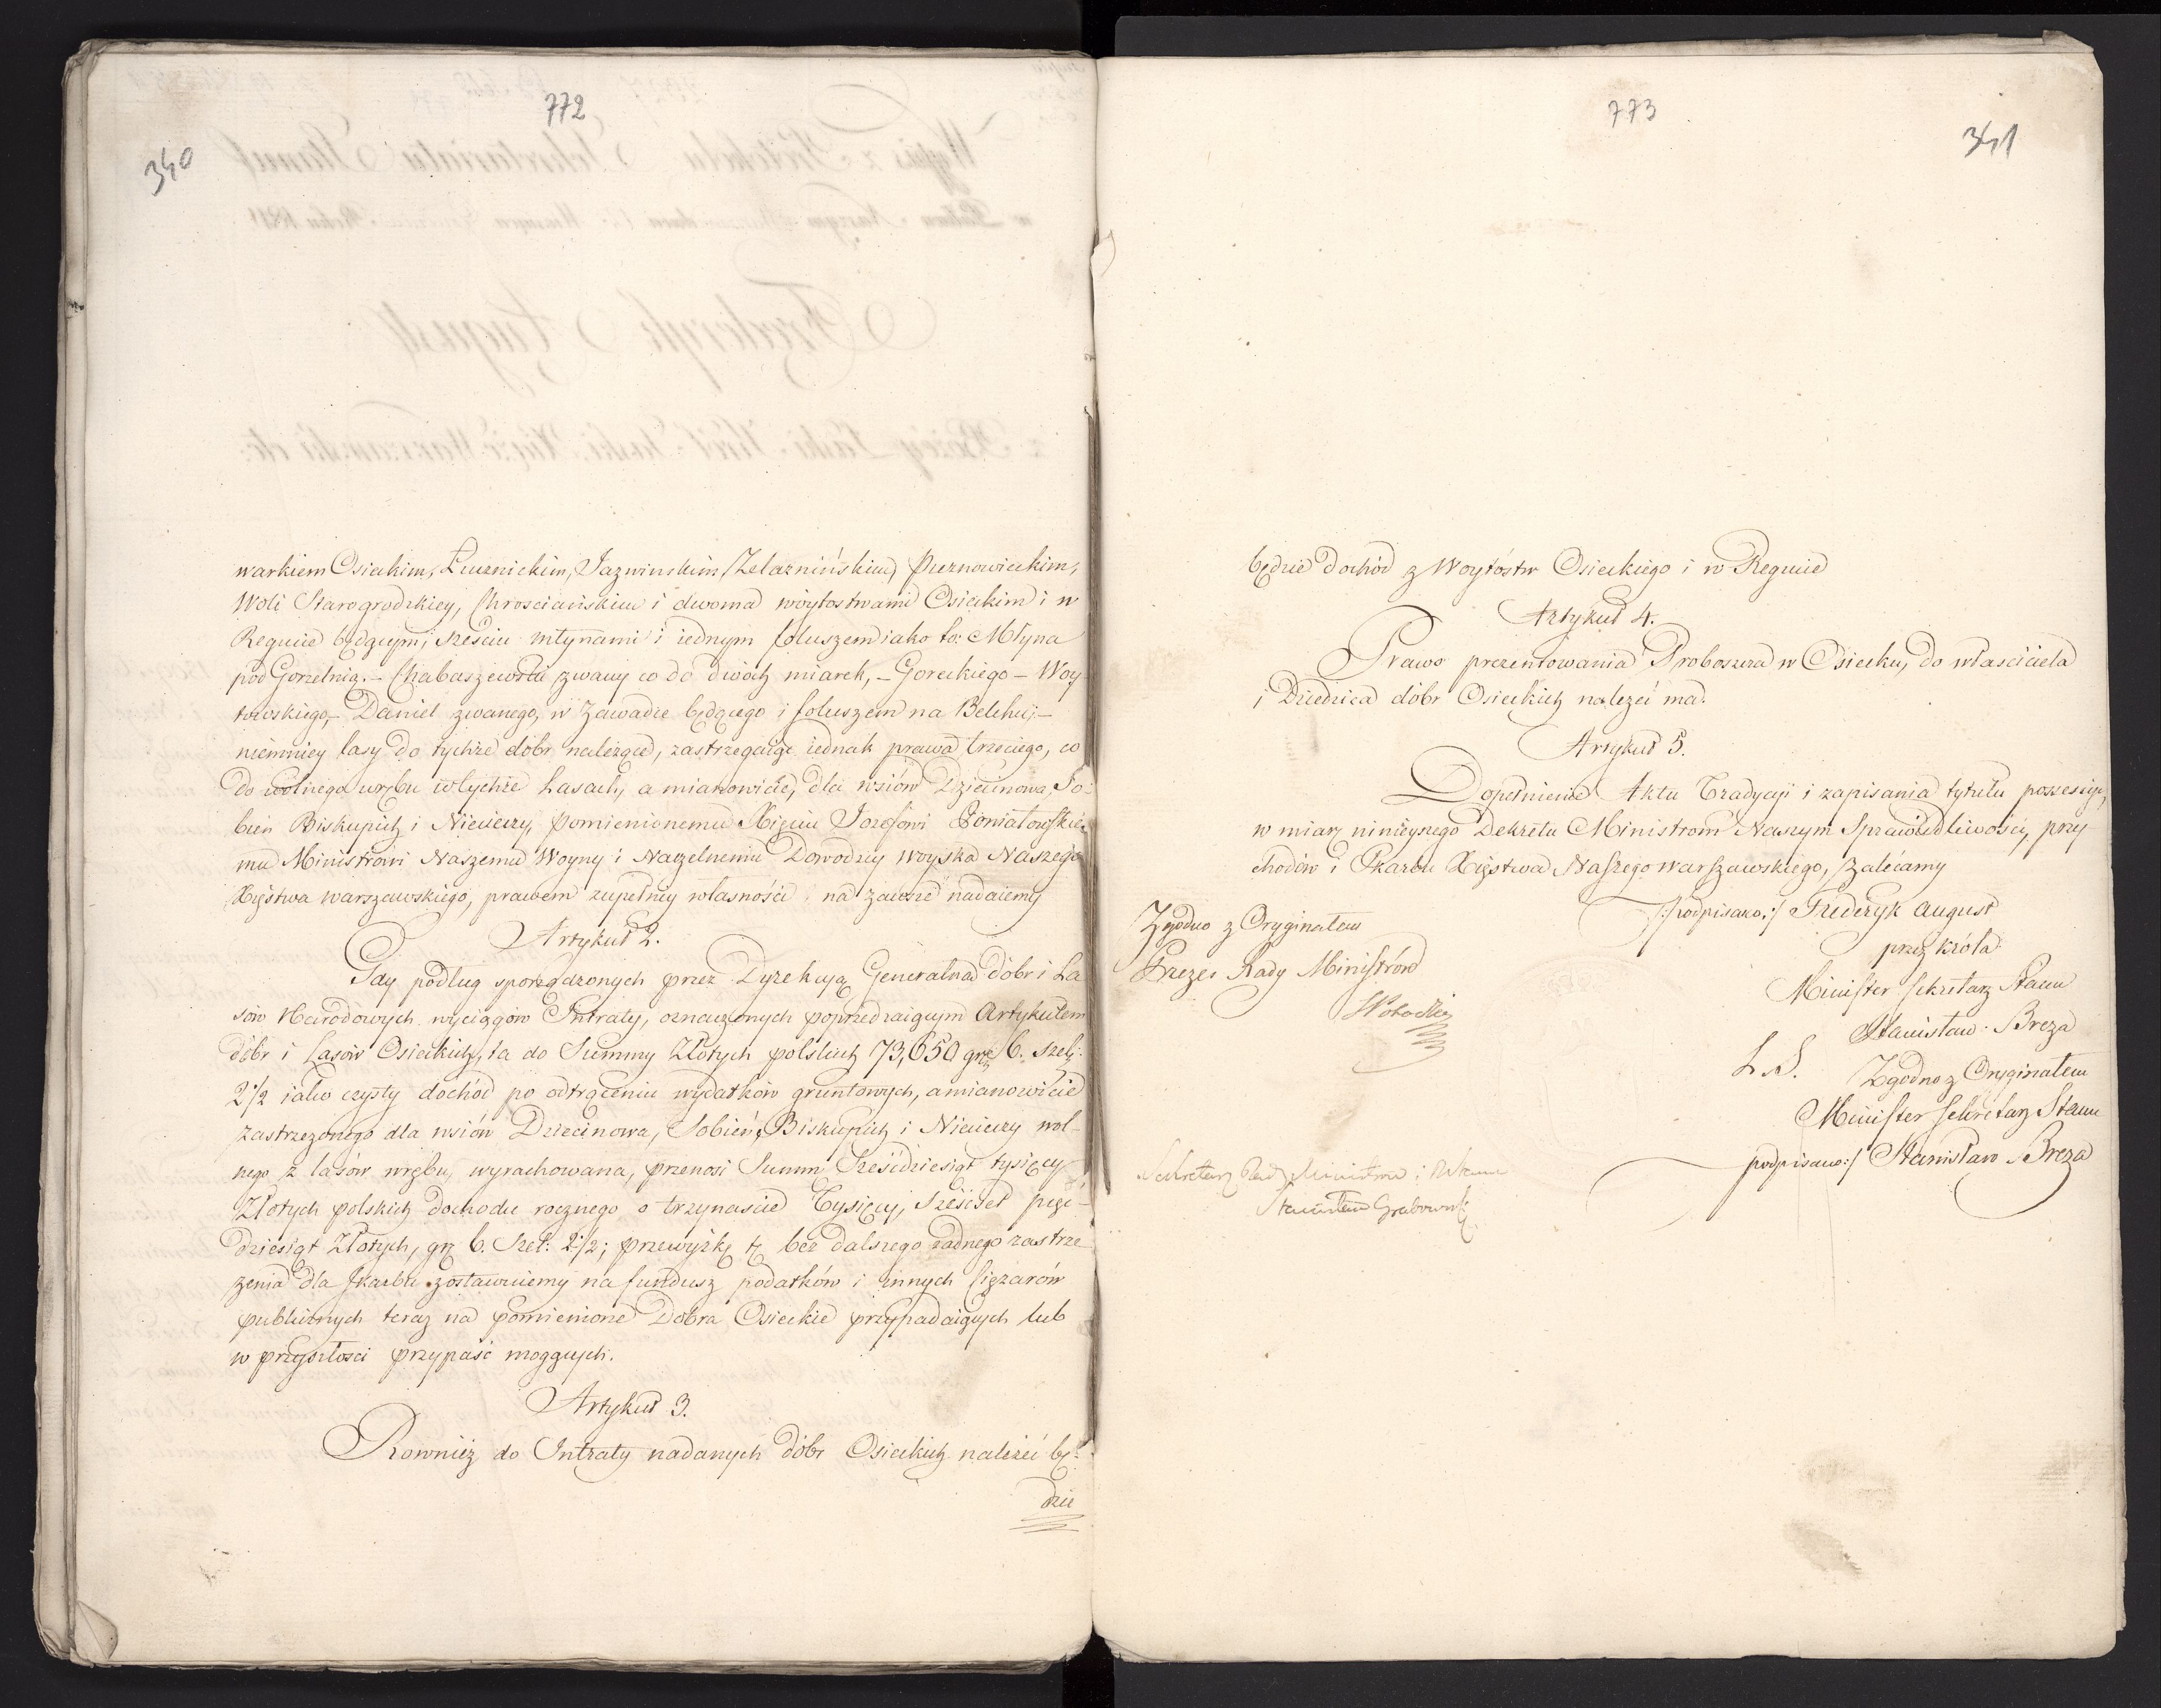 772
340
warkiem Osieckim, Łucznickim, Jazwinskim, Zelaznińskim, Puznowieckim,
Woli Starogrodzkiey, Chrosciańskim i dwoma wóytostwami Osieckim i w
Regucie będącym, sześciu młynami i iednym foluszem iako to: Młyna
pod Gorzelnią. – Chabaszewska zwany co do dwóch miarek, – Goreckiego – Woy
towskiego, – Daniel zwanego, w Zawadze będącego i foluszem na Belchuj –
niemniey lasy do tychże dóbr należące, zastrzegaiąc iednak prawa trzeciego, co
do wolnego wrębu w tychże Lasach, a mianowicie, dla wsiów Dziecinowa, So:
bień Biskupich i Niecieczy, pomienionemu Xięciu Jozefowi Poniatowskie:
mu Ministrowi Naszemu Woyny i Naczelnemu Dowodzcy woyska Naszego
Xięstwa warszawskiego, prawem zupełney własności na zawsze nadaiemy
Artykuł 2.
Gdy podług sporządzonych przez Dyrekcyą Generalną dóbr i La
sów Narodowych wyciągów Intraty, oznaczonych poprzedzaiącym Artykułem
dóbr i Lasów Osieckich, ta do Summy Złotych polskich 73,650 gr. 6. szel:
2 1/2 iako czysty dochód po odtrąceniu wydatków gruntowych, a mianowicie
zastrzezonego dla wsiów Dziecinowa, Sobień Biskupich i Niecieczy wol-
nego z lasów wrębu, wyrachowana, przenosi Summę Sześćdziesiąt tysięcy
Złotych polskich dochodu rocznego o trzynascie Tysięcy, Sześćset pięć-
dziesiąt Złotych, gr. 6. Szel: 2 1/2; przewyżkę tę bez dalszego żadnego zastrze
żenia dla skarbu zostawuiemy na fundusz podatków i innych Ciężarów
publicznych teraz na pomienione Dobra Osieckie przypadaiących lub
w przyszłosci przypaść mogących.
Artykuł 3.
Rownież do Intraty nadanych dóbr Osieckich należeć bę-
dzie
773
341
będzie dochód z Woytóstw Osieckiego i w Regucie
Artykuł 4.
Prawo prezentowania Proboszcza w Osiecku, do własciciela
i Dziedzica dóbr Osieckich należeć ma.
Artykuł 5.
Dopełnienie Aktu Tradycyi i zapisania tytułu possesyi,
w miarę ninieyszego Dekretu Ministrom Naszym Sprawiedliwości, przy
chodów i Skarbu Xięstwa Naszego warszawskiego, zalecamy
/:podpisano:/ Frederyk August
przez króla
Minister Sekretarz Stanu
Stanisław Breza
L. S. Zgodno z Oryginałem
Minister Sekretarz Stanu
podpisano:/ Stanisław Breza
Zgodno z Oryginałem
Prezes Rady Ministrów
SPotocki
Sekretarz Rady Ministrów i Stanu
Stanisław Grabowski